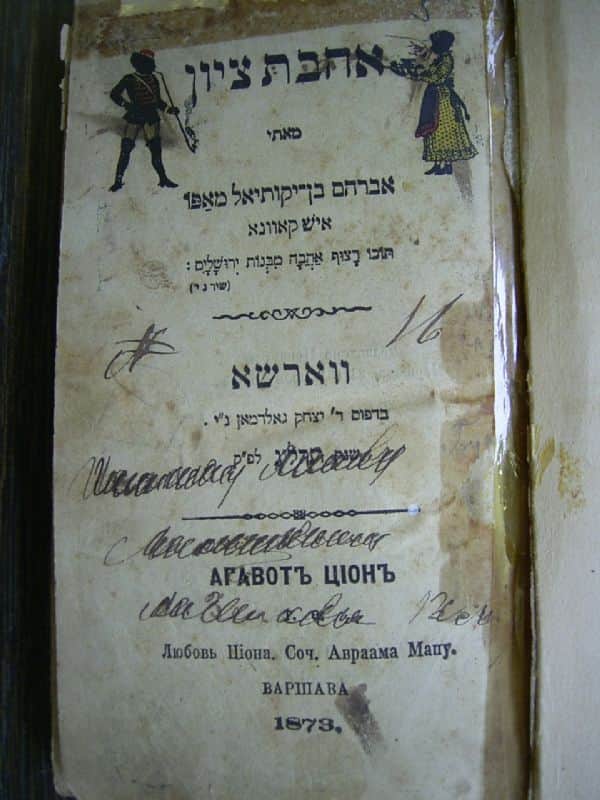 אהבת ציון
מאתי
אברהם בן־יקותיאל מאַפּו
איש קאוונא
תּוֹכוֹ רָצוּף אַהֲבָה מִבְּנוֹת יְרוּשָׁלָיִם׃
(שיר ג י׳)
16
ווארשא
בדפוס ר׳ יצחק גאלדמאן נ״י.
שנת לפ״ק
АГАВОТЪ ЦІОНЪ
Любовь Ціона. Соч. Авраама Мапу.
ВАРШАВА
1873.